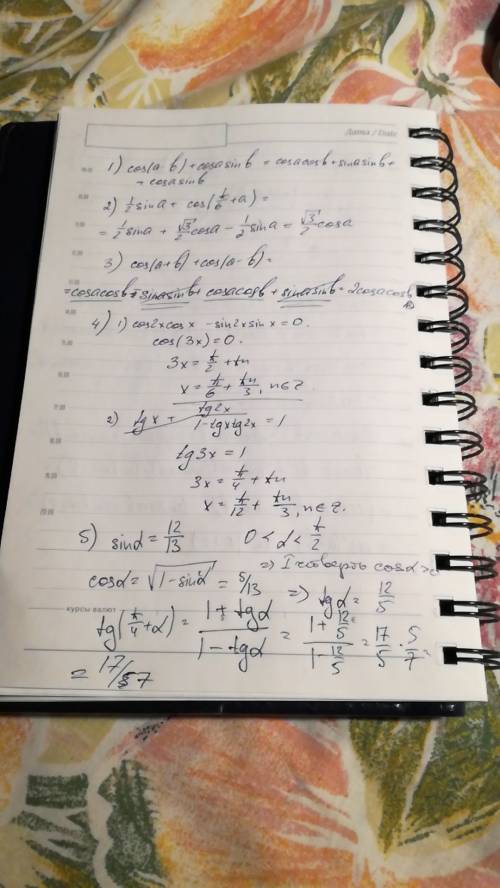 Дата / Date
1) cos(a-b) + cosa sinb = cosa cosb + sina sinb +
+ cosa sinb
2) 1/2 sina + cos(π/6 + a) =
= 1/2 sina + √3/2 cosa - 1/2 sina = √3/2 cosa
3) cos(a+b) + cos(a-b) =
= cosa cosb - sina sinb + cosa cosb + sina sinb = 2cosa cosb
4) 1) cos2x cosx - sin2x sinx = 0.
cos(3x) = 0.
3x = π/2 + πn
x = π/6 + πn/3, n∈Z
2) (tgx + tg2x)/(1 - tgx tg2x) = 1
tg3x = 1
3x = π/4 + πn
x = π/12 + πn/3, n∈Z.
5) sinα = 12/13 0 < α < π/2
=> I четверть cosα >0
cosα = √(1 - sin²α) = 5/13 => tgα = 12/5
курсы валют
tg(π/4 + α) = (1 + tgα)/(1 - tgα) = (1 + 12/5)/(1 - 12/5) = 17/5 · 5/7 =
= 17/7